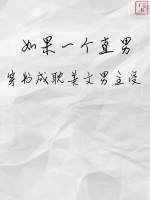 如果一个直男
穿书成耽美文男主受